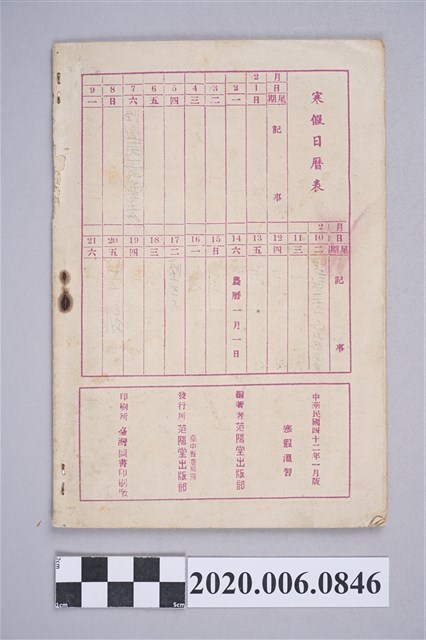 寒假日曆表
月 2
日 1 2 3 4 5 6 7 8 9
星期 日 一 二 三 四 五 六 日 一
記事
月 2
日 10 11 12 13 14 15 16 17 18 19 20 21
星期 二 三 四 五 六 日 一 二 三 四 五 六
記事
農曆一月一日
中華民國四十二年一月版
寒假溫習
編著者 范陽堂出版部
發行所 范陽堂出版部
印刷所 臺灣圖書印刷
2cm
1cm
5cm
2020.006.0846